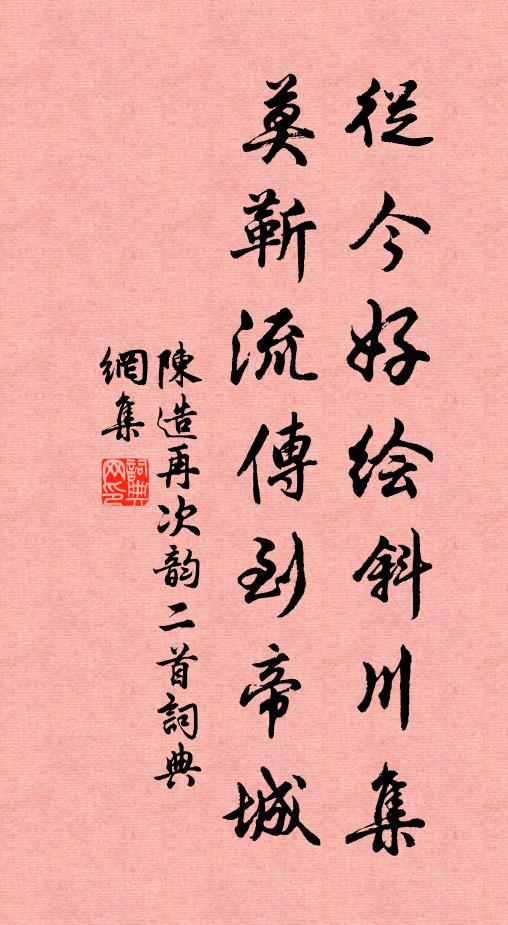 從今好绘斜川集
莫靳流傳到帝城
陳造再次韵二首詞典
網集
詞典
网印